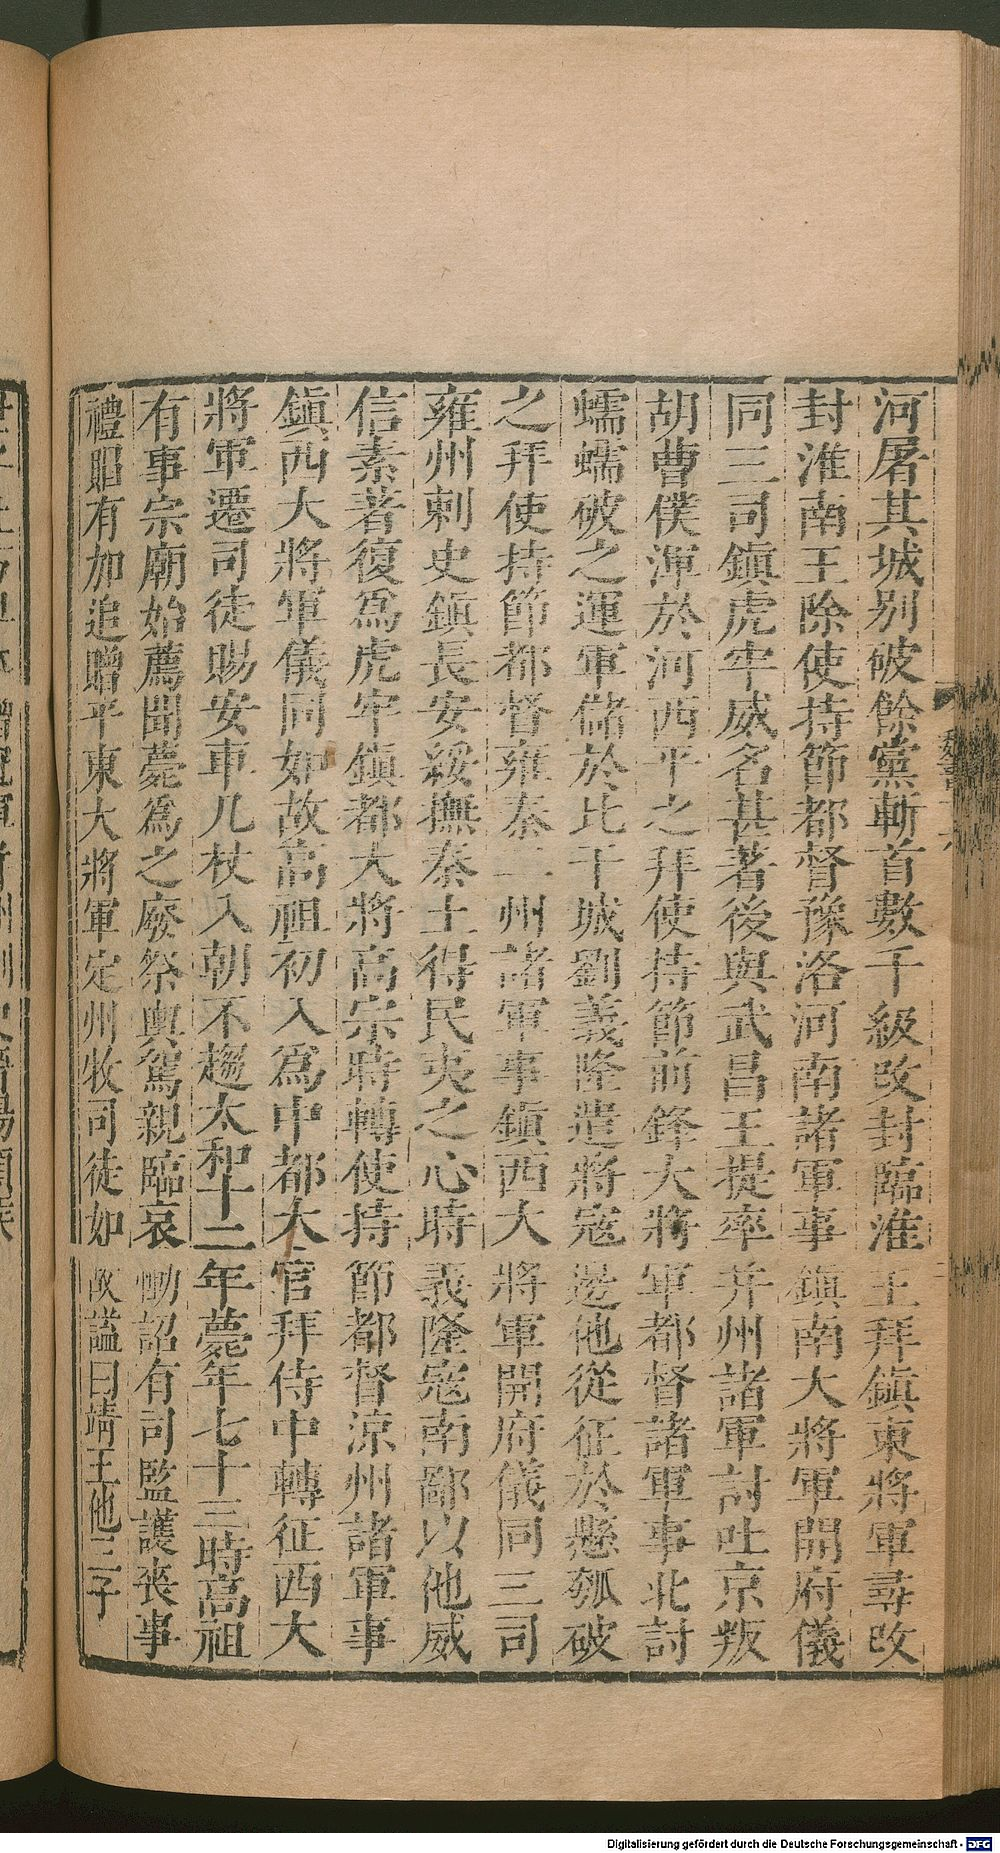 河屠其城別破餘黨斬首數千級改封臨淮王拜鎮東將軍尋改
封淮南王除使持節都督豫洛河南諸軍事鎮南大將軍開府儀
同三司鎮虎牢威名甚著後與武昌王提率并州諸軍討吐京叛
胡曹僕渾於河西平之拜使持節前鋒大將軍都督諸軍事北討
蠕蠕破之運軍儲於比干城劉義隆遣將寇邊他從征於懸瓠破
之拜使持節都督雍秦二州諸軍事鎮西大將軍開府儀同三司
雍州刺史鎮長安綏撫秦土得民夷之心時義隆寇南鄙以他威
信素著復爲虎牢鎮都大將高宗時轉使持節都督涼州諸軍事
鎮西大將軍儀同如故高祖初入爲中都大官拜侍中轉征西大
將軍遷司徒賜安車几杖入朝不趨太和十二年薨年七十三時高祖
有事宗廟始薦聞薨爲之廢祭輿駕親臨哀慟詔有司監護喪事
禮賵有加追贈平東大將軍定州牧司徒如故謚曰靖王他三子
Digitalisierung gefördert durch die Deutsche Forschungsgemeinschaft - DFG